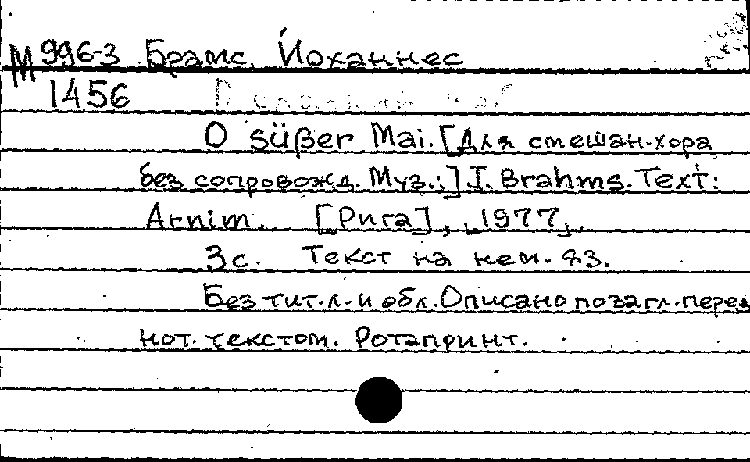 М 996-3 Брамс, Йоханнес
1456
O süßer Mai. [Для смешан. хора
без сопровожд. Муз.:] J. Brahms. Text:
Arnim. [Рига], [1977].
3 с. Текст на нем. яз.
Без тит. л. и обл. Описано по загл. перед
нот. текстом. Ротапринт.